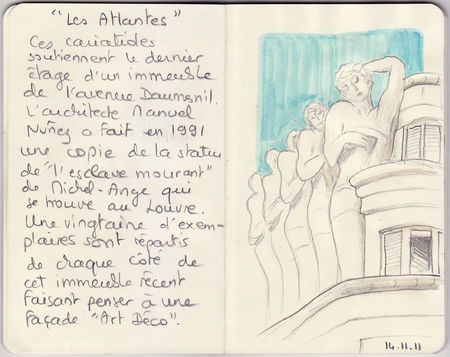 "Les Atlantes"
Ces cariatides
soutiennent le dernier
étage d'un immeuble
de l'avenue Daumesnil.
L'architecte Manuel
Nuñez a fait en 1991
une copie de la statue
de "l'esclave mourant"
de Michel-Ange qui
se trouve au Louvre.
Une vingtaine d'exem-
plaires sont répartis
de chaque côté de
cet immeuble récent
faisant penser à une
façade "Art Déco".
14.11.11